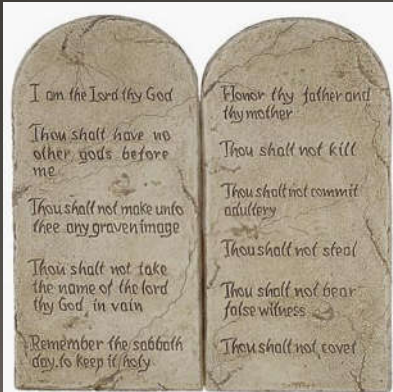 I am the Lord thy God
Thou shalt have no
other gods before
me
Thou shall not make unto
thee any graven image
Thou shalt not take
the name of the lord
thy God, in vain
Remember the sabbath
day, to keep it holy
Honor thy father and
thy mother
Thou shalt not kill
Thou shall not commit
adultery
Thou shall not steal
Thou shall not bear
false witness
Thou shall not covet